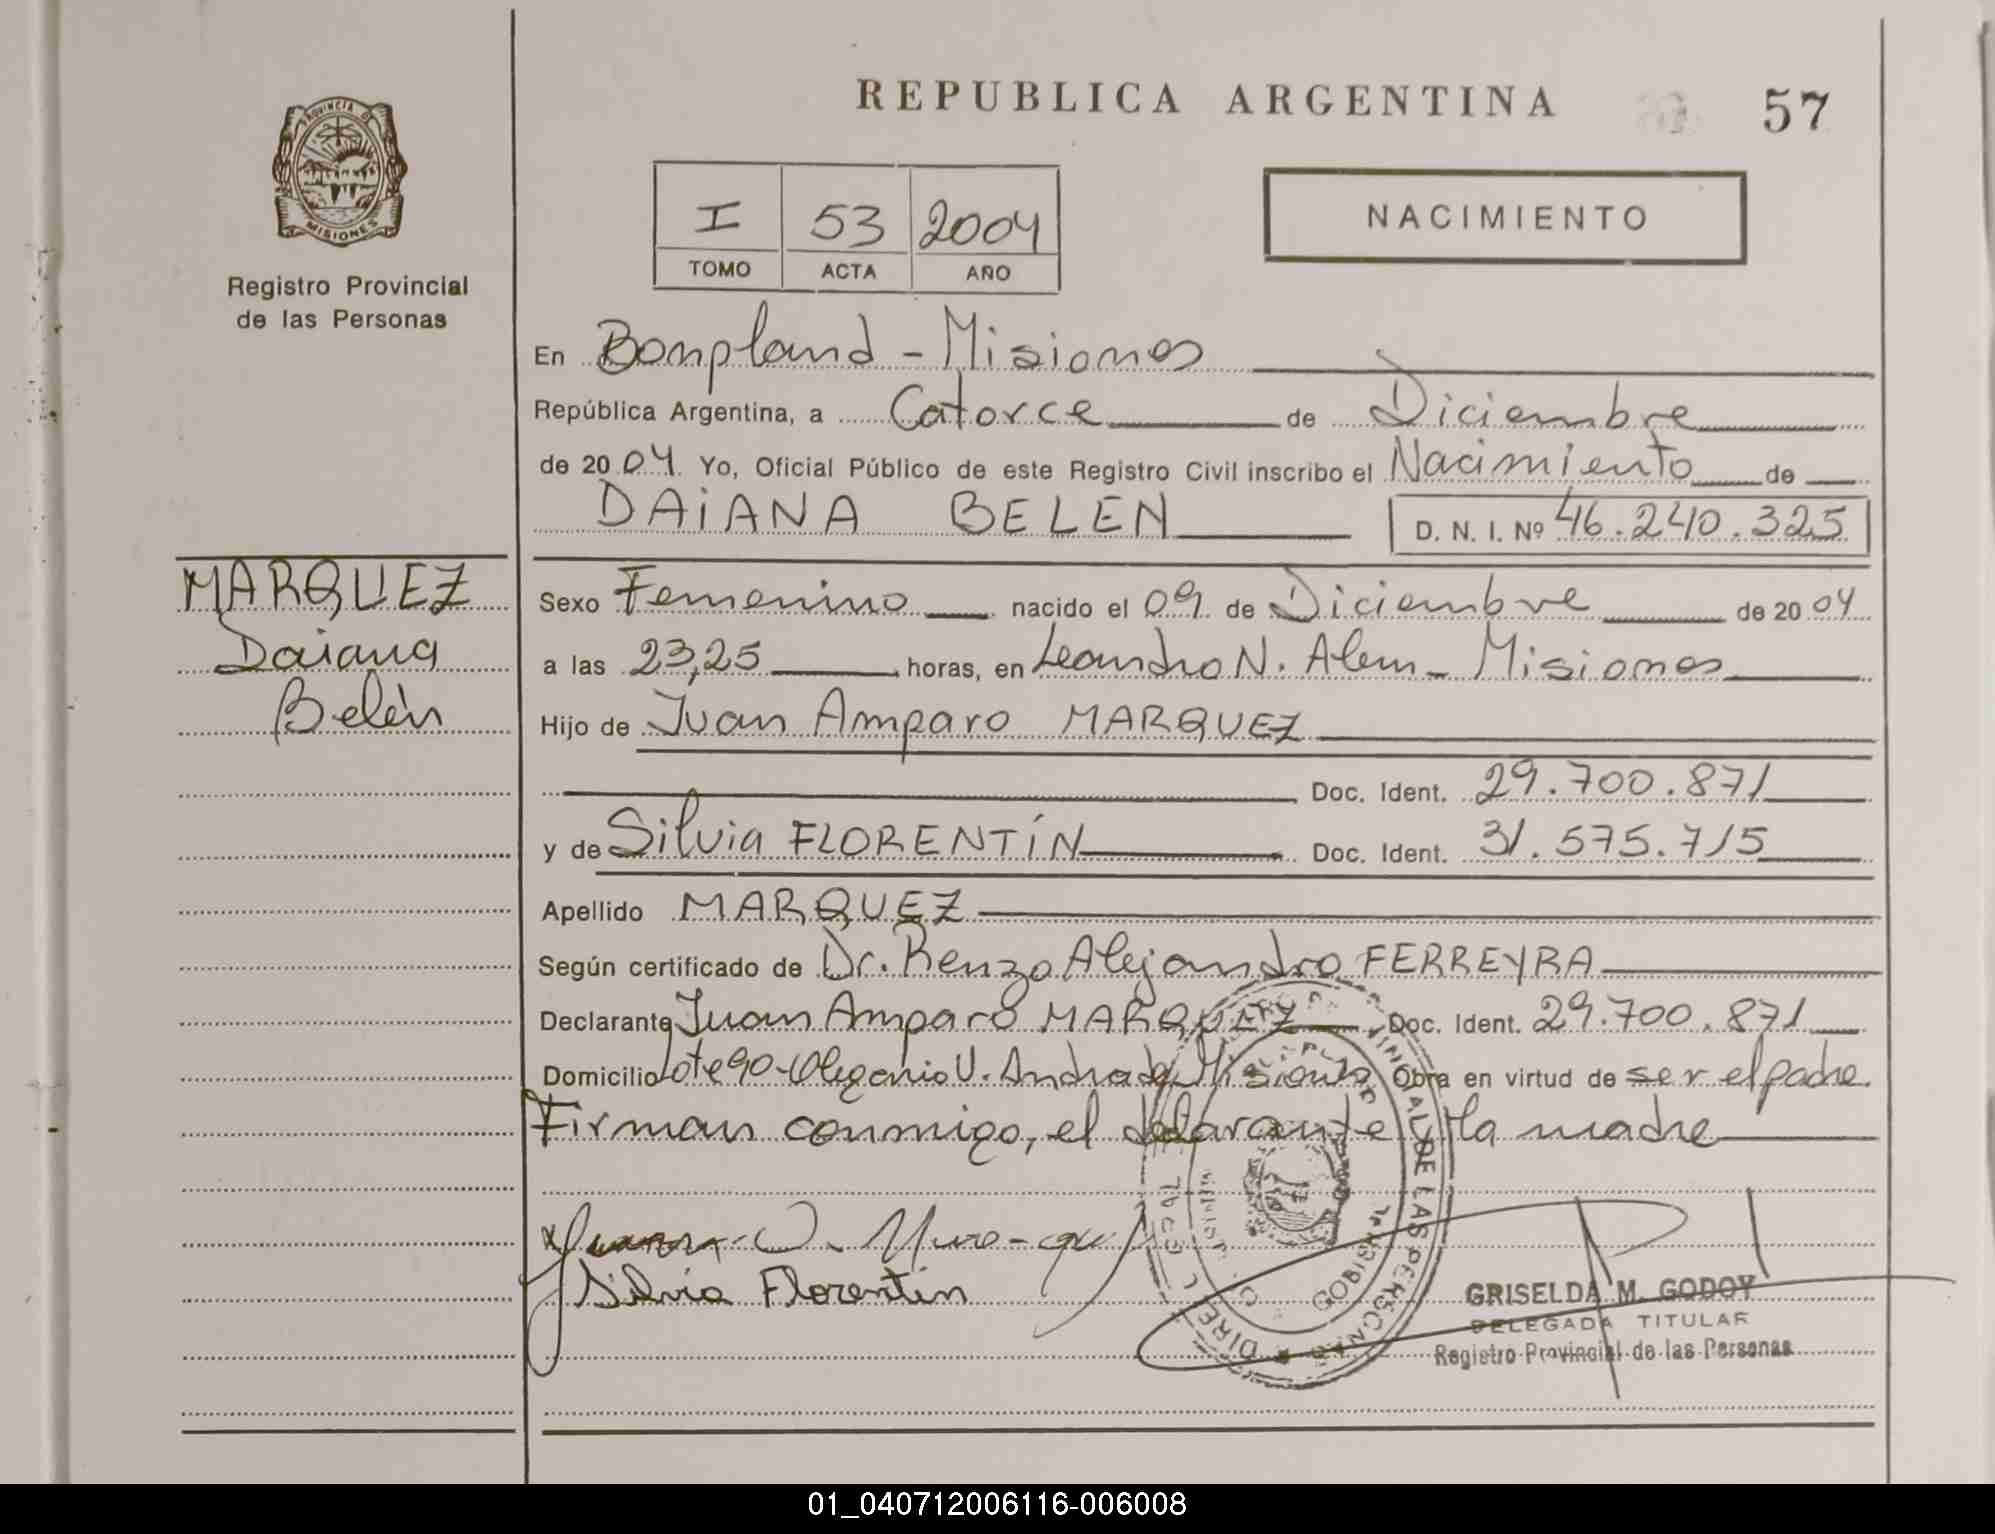 REPUBLICA ARGENTINA
57
PROVINCIA DE
MISIONES
Registro Provincial
de las Personas
I 53 2004
TOMO ACTA AÑO
NACIMIENTO
En Bonpland - Misiones
República Argentina, a Catorce de Diciembre
de 2004. Yo, Oficial Público de este Registro Civil inscribo el Nacimiento de
DAiANA BELEN D. N. I. Nº 46.240.325
MARQUEZ
Daiana
Belén
Sexo Femenino nacido el 09 de Diciembre de 2004
a las 23,25 horas, en Leandro N. Alem - Misiones
Hijo de Juan Amparo MARQUEZ
Doc. Ident. 29.700.871
y de Silvia FLORENTÍN Doc. Ident. 31.575.715
Apellido MARQUEZ
Según certificado de Dr. Renzo Alejandro FERREYRA
Declarante Juan Amparo MARQUEZ Doc. Ident. 29.700.871
Domicilio Lote 90 - Olegario V. Andrade Misiones Obra en virtud de ser el padre.
Firman conmigo, el declarante y la madre
Silvia Florentín
GRISELDA M. GODOY
DELEGADA TITULAR
Registro Provincial de las Personas
01_040712006116-006008